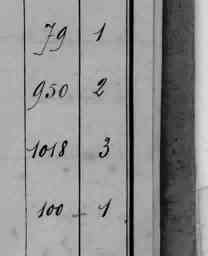 79 1
950 2
1018 3
100 - 1